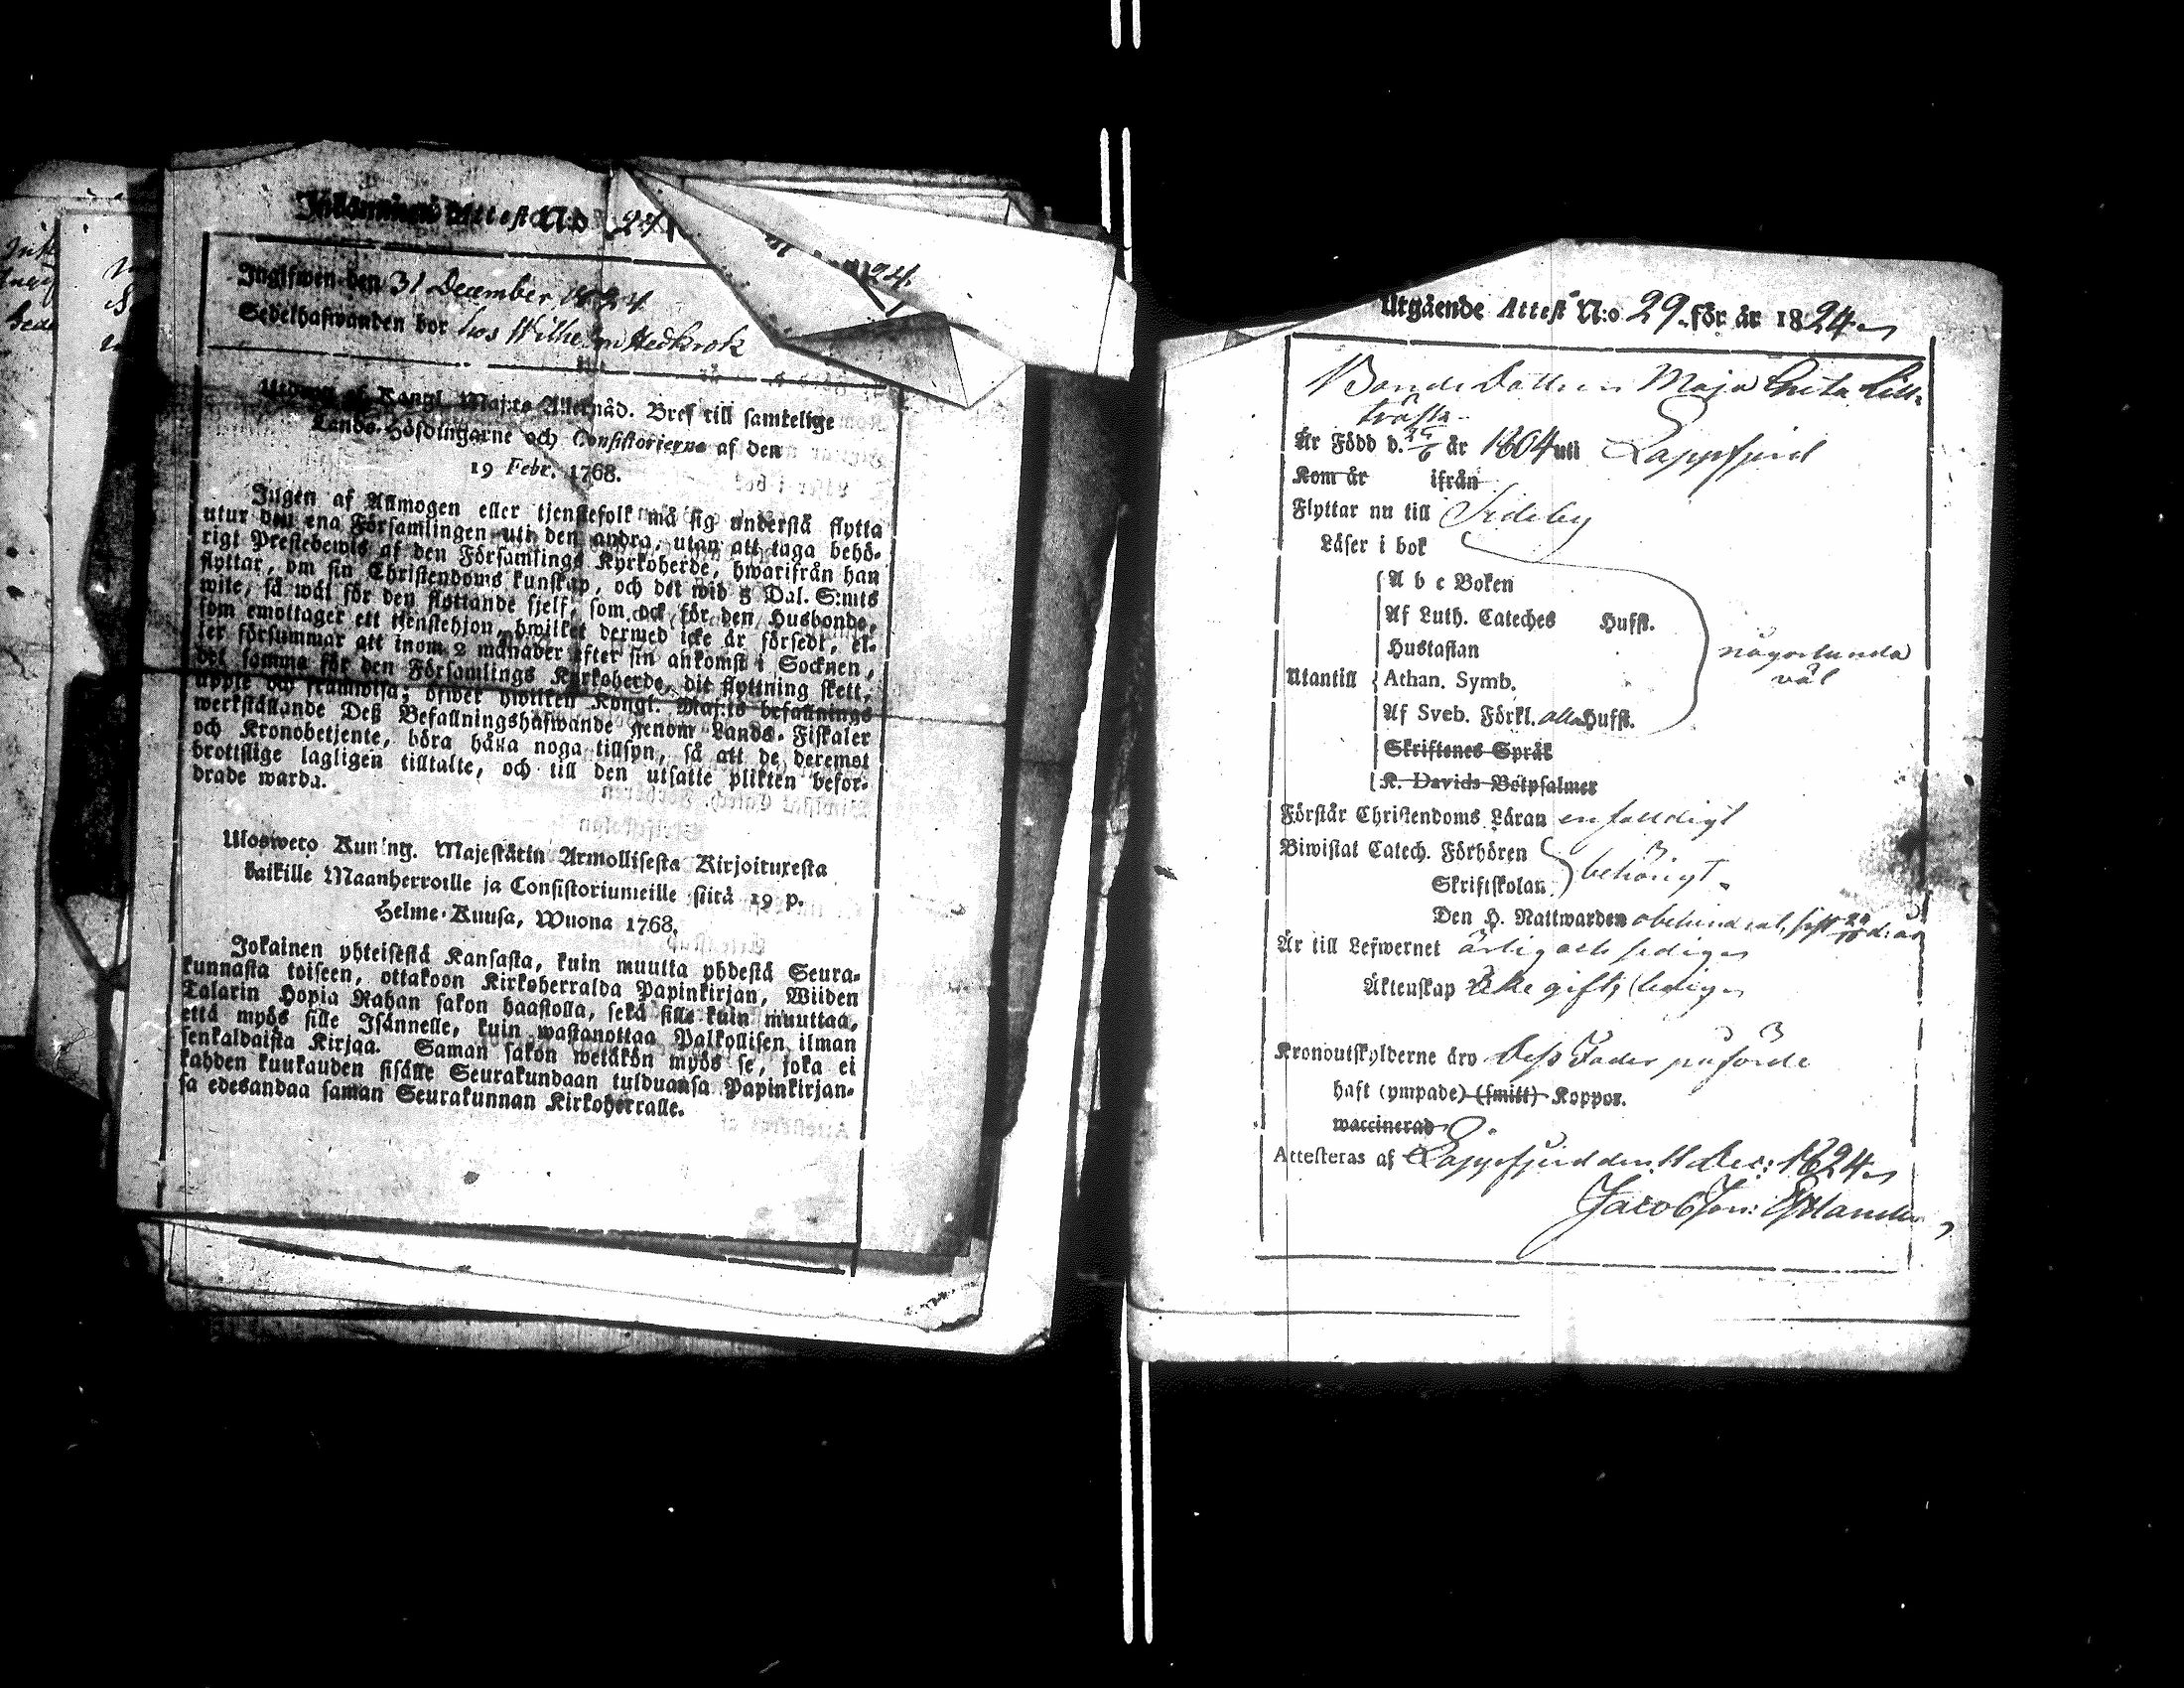 Inkommande Attest N:o 24
Inglifwen den 31 December 1824
Sedelhafwanden bor hos Wilhelm Hedkrok
Utdrag af Kongl. Maj:ts Allernåd. Bref till samtelige
Lands-Höfdingarne och Consistorierne af den
19 Febr. 1768.
Ingen af Allmogen eller tjenstefolk må sig understå flytta
utur den ena Församlingen uti den andra, utan att taga behö-
rigt Prestebewis af den Församlings Kyrkoherde, hwarifrån han
flyttar, om sin Christendoms kunskap, och det wid 5 Dal. S:mts
wite, så wäl för den flyttande sjelf, som ock för den Husbonde,
som emottager ett tjenstehjon, hwilket dermed icke är försedt, el-
ler försummar att inom 2 månader efter sin ankomst i Socknen,
det samma för den Församlings Kyrkoherde, dit flyttning skett,
uppte och framwisa; öfwer hwilken Kongl. Maj:ts befallnings
werkställande Deß Befallningshafwande genom Lands-Fiskaler
och Kronobetjente, böra hålla noga tillsyn, så att de deremot
brottslige lagligen tilltalte, och till den utsatte plikten befor-
drade warda.
Uloswero Kuning. Majestätin Armollisesta Kirjoituxesta
kaikille Maanherroille ja Consistoriumeille siitä 19 p.
Helme-Kuusa, Wuona 1768.
Jokainen yhteisestä Kansasta, kuin muutta yhdestä Seura-
kunnasta toiseen, ottakoon Kirkoherralda Papinkirjan, Wiiden
Talarin Hopia Rahan sakon haastolla, sekä sille kuin muuttaa,
että myös sille Isännelle, kuin wastanottaa Palkollisen ilman
senkaldaista Kirjaa. Saman sakon wetäkön myös se, joka ei
kahden kuukauden sisälle Seurakundaan tulduansa Papinkirjan-
sa edesandaa saman Seurakunnan Kirkoherralle.
Utgående Attest N:o 29 för år 1824
Bonde Dottren Maja Greta Lill-
träsk
Är Född d. år 1804 uti Lappfjerd
Kom år ifrån
Flyttar nu till Sideby
Läser i bok
A b c Boken
Af Luth. Cateches Hufst.
Hustaflan någorlunda
Utantill Athan. Symb. väl
Af Sveb. Förkl. alla Hufst.
Skriftenes Språk
K. Davids Botpsalmer
Förstår Christendoms Läran enfaldigt
Biwistat Catech. Förhören
Skriftskolan behörigt.
Den H. Nattwarden obehindrat, sist d: år
Är till Lefwernet ärlig och sedig
Äktenskap icke gift; ledig
Kronoutskylderne äro dess Fader påförde
haft (ympade) (smitt) Koppor.
waccinerad
Attesteras af Lappfjerd den 11 Dec: 1824
Jacob Jon: Estlander